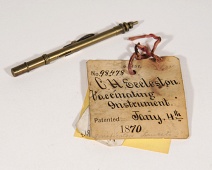 No. 98,478
C. H. Eccleston,
Vaccinating
Instrument.
Patented Jany. 4th
1870